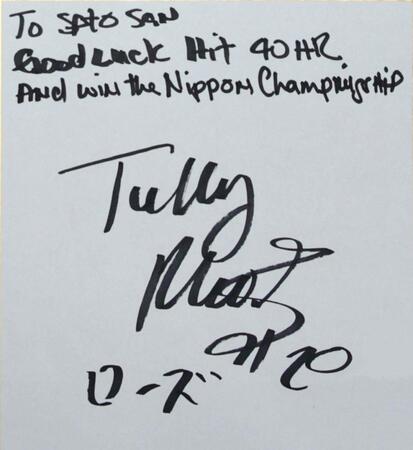 To SATO SAN
Good Luck Hit 40 HR.
And win the Nippon Championship
Tuffy
Rhodes
#20
ローズ